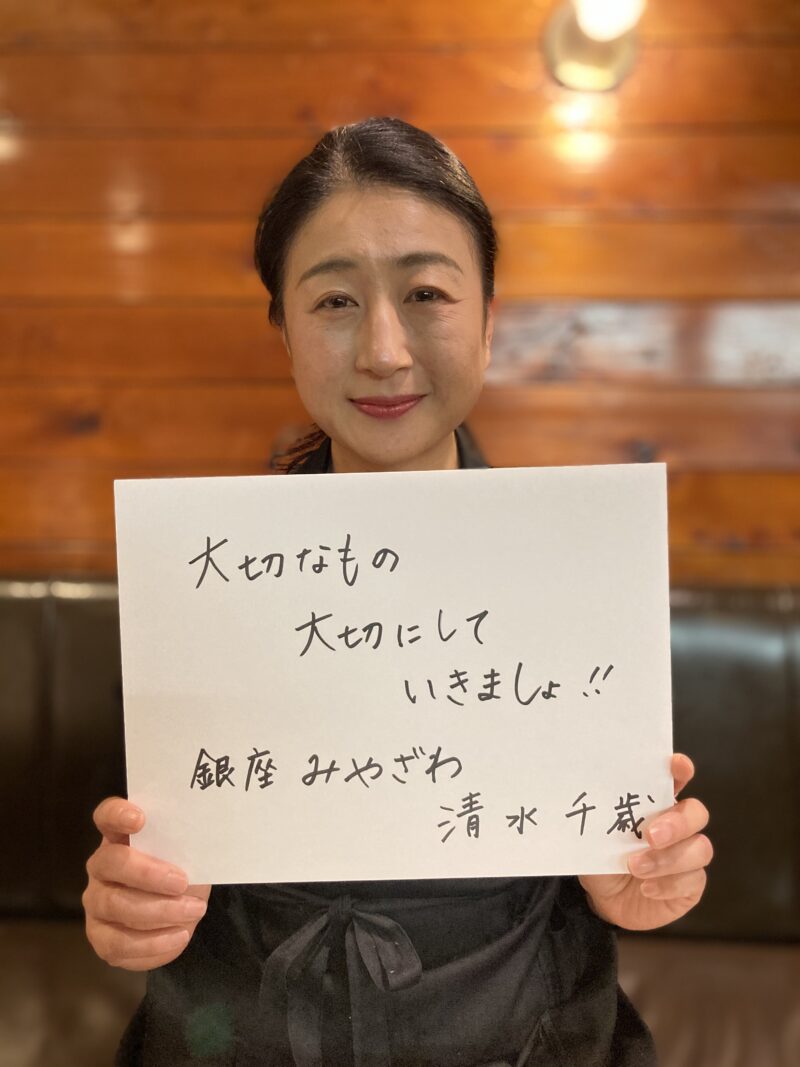 大切なもの
大切にして
いきましょ!!
銀座 みやざわ
清水 千歳